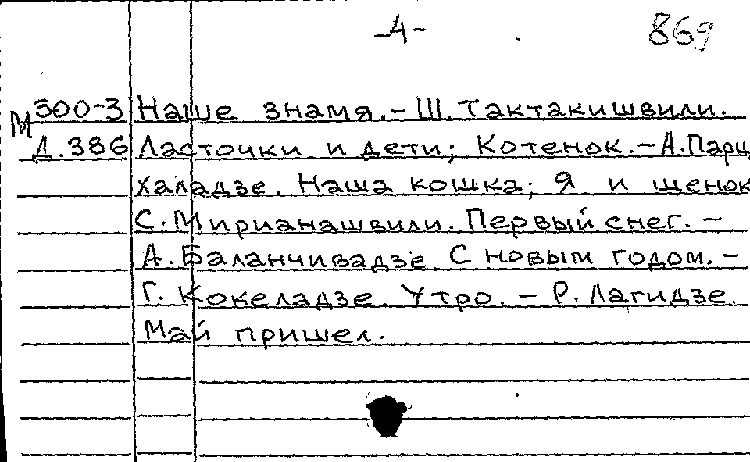 -4-
869
М 500-3 Наше знамя. - Ш. Тактакишвили.
Д.386 Ласточки и дети; Котенок. - А. Парц
халадзе. Наша кошка; Я и щенок
С. Мирианашвили. Первый снег. -
А. Баланчивадзе. С новым годом. -
Г. Кокеладзе. Утро. - Р. Лагидзе
Май пришел.